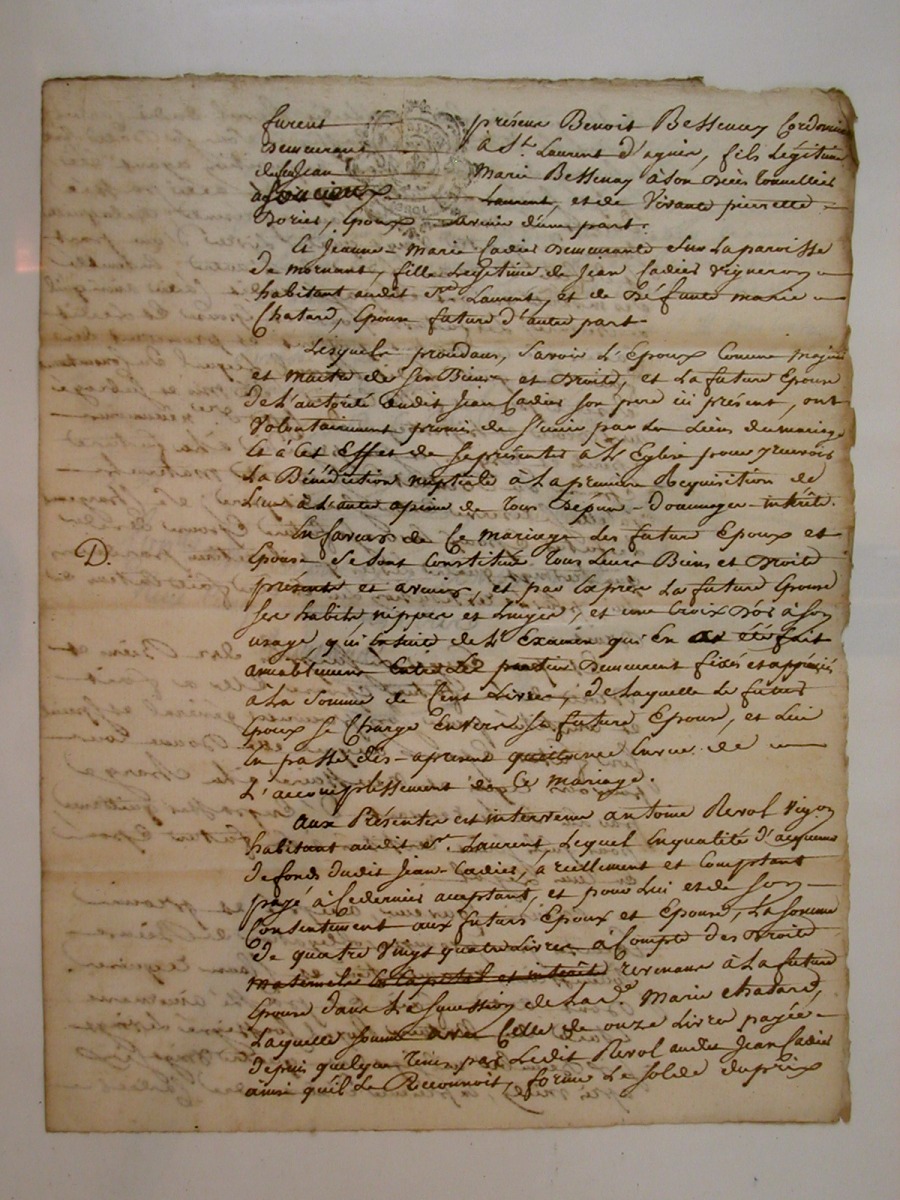 furent présens Benoit Bessenay Cordonnier
Demeurant à St. Laurent d'agnir, fils Légitime
de feu Jean Marie Bessenay à son Décès
Laurent, et de Vivante pierrette
Dories, Epoux avenir d'une part.
Et Jeanne-Marie Cadier Demeurante Sur La paroisse
De mornant, fille Legitime de Jean Cadier Vigneron
habitant audit St. Laurent, et de Défunte marie
Chatard, Epouse future d'autre part.
Lesquels procédans, Savoir L'Epoux Comme Majeur
et maitre de ses Biens et Droits, et La future Epouse
De L'autorité dudit Jean Cadier son pere ici présent, ont
Volontairement promis de S'unir par Les Liens du mariage
Et à Cet Effet de se présenter à L'Eglise pour y recevoir
La Bénédiction nuptiale à La premiere Requisition de
L'un à L'autre à peine de Tous Dépens-Dommages-intérêts.
En faveur de Ce mariage Les futurs Epoux et
D.
Epouse Se sont Constitués Tous Leurs Biens et Droits
présents et avenirs, et par Exprès La future Epouse
ses habits nippes et linges, et une Croix D'or à Son
usage, qui Ensuite de L'Examen qui En a été fait
amiablement Entre Les parties Demeurent fixés et appréciés
à La Somme de Cent Livres, de Laquelle Le futur
Epoux se Charge Envers Sa future Epouse, et Lui
En passe dès-apresent quittance En vue de
L'accomplissement de Ce mariage.
Aux Présentes est intervenu antoine Revol Vigon
habitant audit St. Laurent, Lequel En qualité d'acquereur
De fonds dudit Jean Cadier, a réellement et Comptant
payé à Ce dernier acceptant, et pour Lui et de Son
Consentement aux futurs Epoux et Epouse, La Somme
De quatre Vingt quatre Livres à Compte des Droits
maternels En Capital et intérêts revenans à La future
Epouse dans La Succession de Lad.e Marie Chatard,
Laquelle Somme avec Celle de onze Livres payée
Depuis quelque Tems par Ledit Revol audit Jean Cadier
ainsi qu'il Le Reconnoit, forme Le Solde du prix